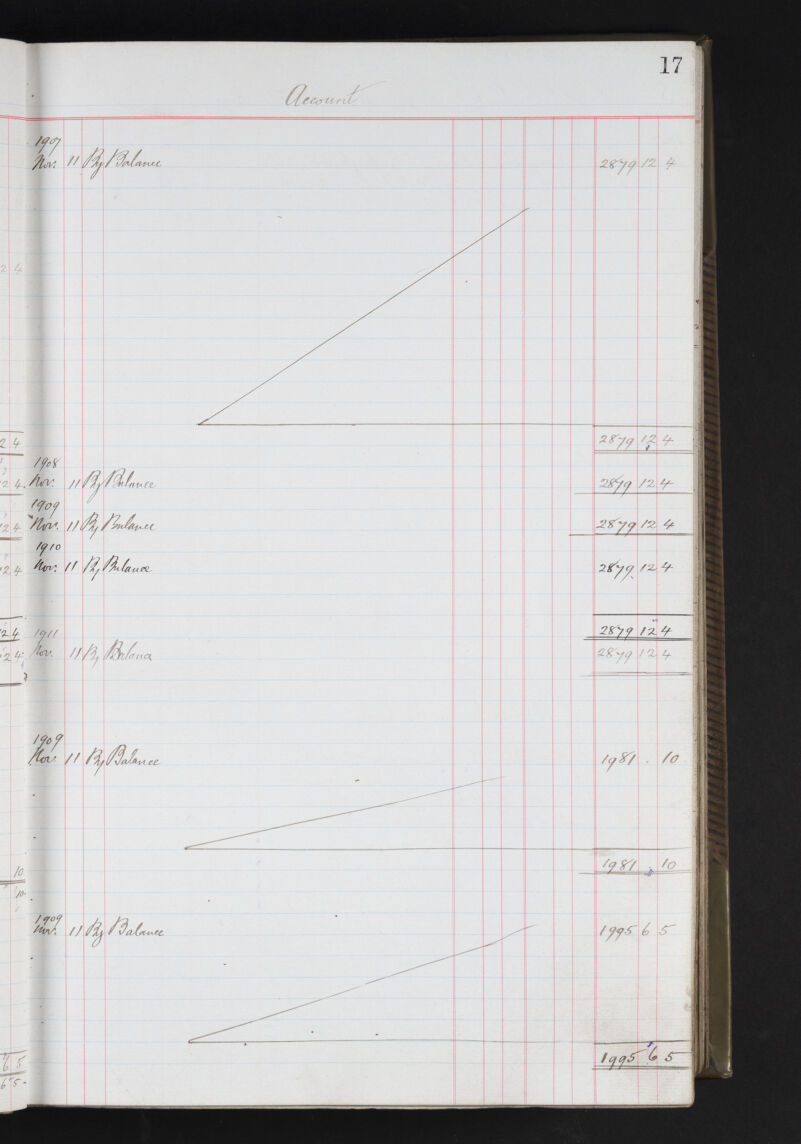 17
Account
1907
Nov. 11 By Balance 2879 12 4
2 4
2879 12 4
2 4
1908
Nov. 11 By Balance 2879 12 4
2 4
1909
Nov. 11 By Balance 2879 12 4
2 4
1910
Nov. 11 By Balance 2879 12 4
2 4
2879 12 4
2 4
1911
Nov. 11 By Balance 2879 12 4
2 4
1909
Nov. 11 By Balance 1981 . 10
1981 . 10
10
10
1909
Nov. 11 By Balance 1995 6 5
1995 6 5
6 5
6 5